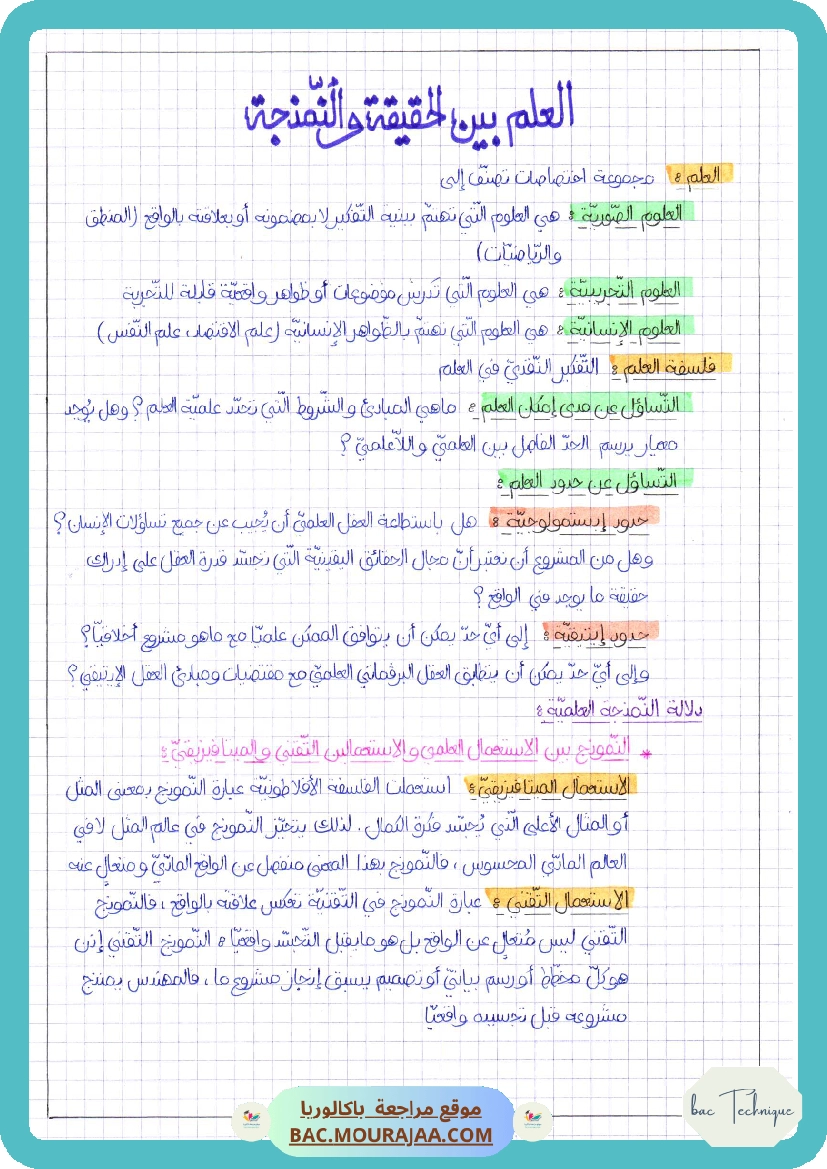 العلم بين الحقيقة والنّمذجة
العلم : مجموعة اختصاصات تصنّف إلى
العلوم الصّوريّة : هي العلوم الّتي تهتمّ ببنية التّفكير لا بمضمونه أو بعلاقته بالواقع (المنطق
والرّياضيّات)
العلوم التّجريبيّة : هي العلوم الّتي تدرس موضوعات أو ظواهر واقعيّة قابلة للتّجربة
العلوم الإنسانيّة : هي العلوم الّتي تهتمّ بالظّواهر الإنسانيّة (علم الاقتصاد، علم النّفس)
فلسفة العلم : التّفكير النّقديّ في العلم
التّساؤل عن مدى إمكان العلم : ماهي المبادئ والشّروط الّتي تحدّد علميّة العلم ؟ وهل يُوجد
معيار يرسم الحدّ الفاصل بين العلميّ واللّاعلميّ ؟
التّساؤل عن حدود العلم :
حدود إبستمولوجيّة : هل باستطاعة العقل العلميّ أن يُجيب عن جميع تساؤلات الإنسان ؟
وهل من المشروع أن نعتبر أنّ مجال الحقائق اليقينيّة الّتي تجسّد قدرة العقل على إدراك
حقيقة ما يوجد في الواقع ؟
حدود إيتيقيّة : إلى أيّ حدّ يمكن أن يتوافق الممكن علميّا مع ماهو مشروع أخلاقيّا؟
وإلى أيّ حدّ يمكن أن يتطابق العقل البرڤماتي العلميّ مع مقتضيات ومبادئ العقل الإيتيقي ؟
دلالة النّمذجة العلميّة :
* النّموذج بين الاستعمال العلمي والاستعمالين التّقني والميتافيزيقيّ :
الاستعمال الميتافيزيقيّ : استعملت الفلسفة الأفلاطونيّة عبارة النّموذج بمعنى المثل
أو المثال الأعلى الّتي يُجسّد فكرة الكمال . لذلك يتحيّز النّموذج في عالم المثل لا في
العالم المادّي المحسوس ، فالنّموذج بهذا المعنى منفصل عن الواقع المادّيّ ومتعالٍ عنه
الاستعمال التّقني : عبارة النّموذج في التّقنيّة تعكس علاقته بالواقع ، فالنّموذج
التّقني ليس مُتعالٍ عن الواقع بل هو مايقبل التّجسّد واقعيّا : النّموذج التّقني إذن
هو كلّ مخطّط أو رسم بيانيّ أو تصميم يسبق إنجاز مشروع ما ، فالمهندس يمنذج
مشروعه قبل تجسيده واقعيّا
موقع مراجعة باكالوريا
BAC.MOURAJAA.COM
bac Technique